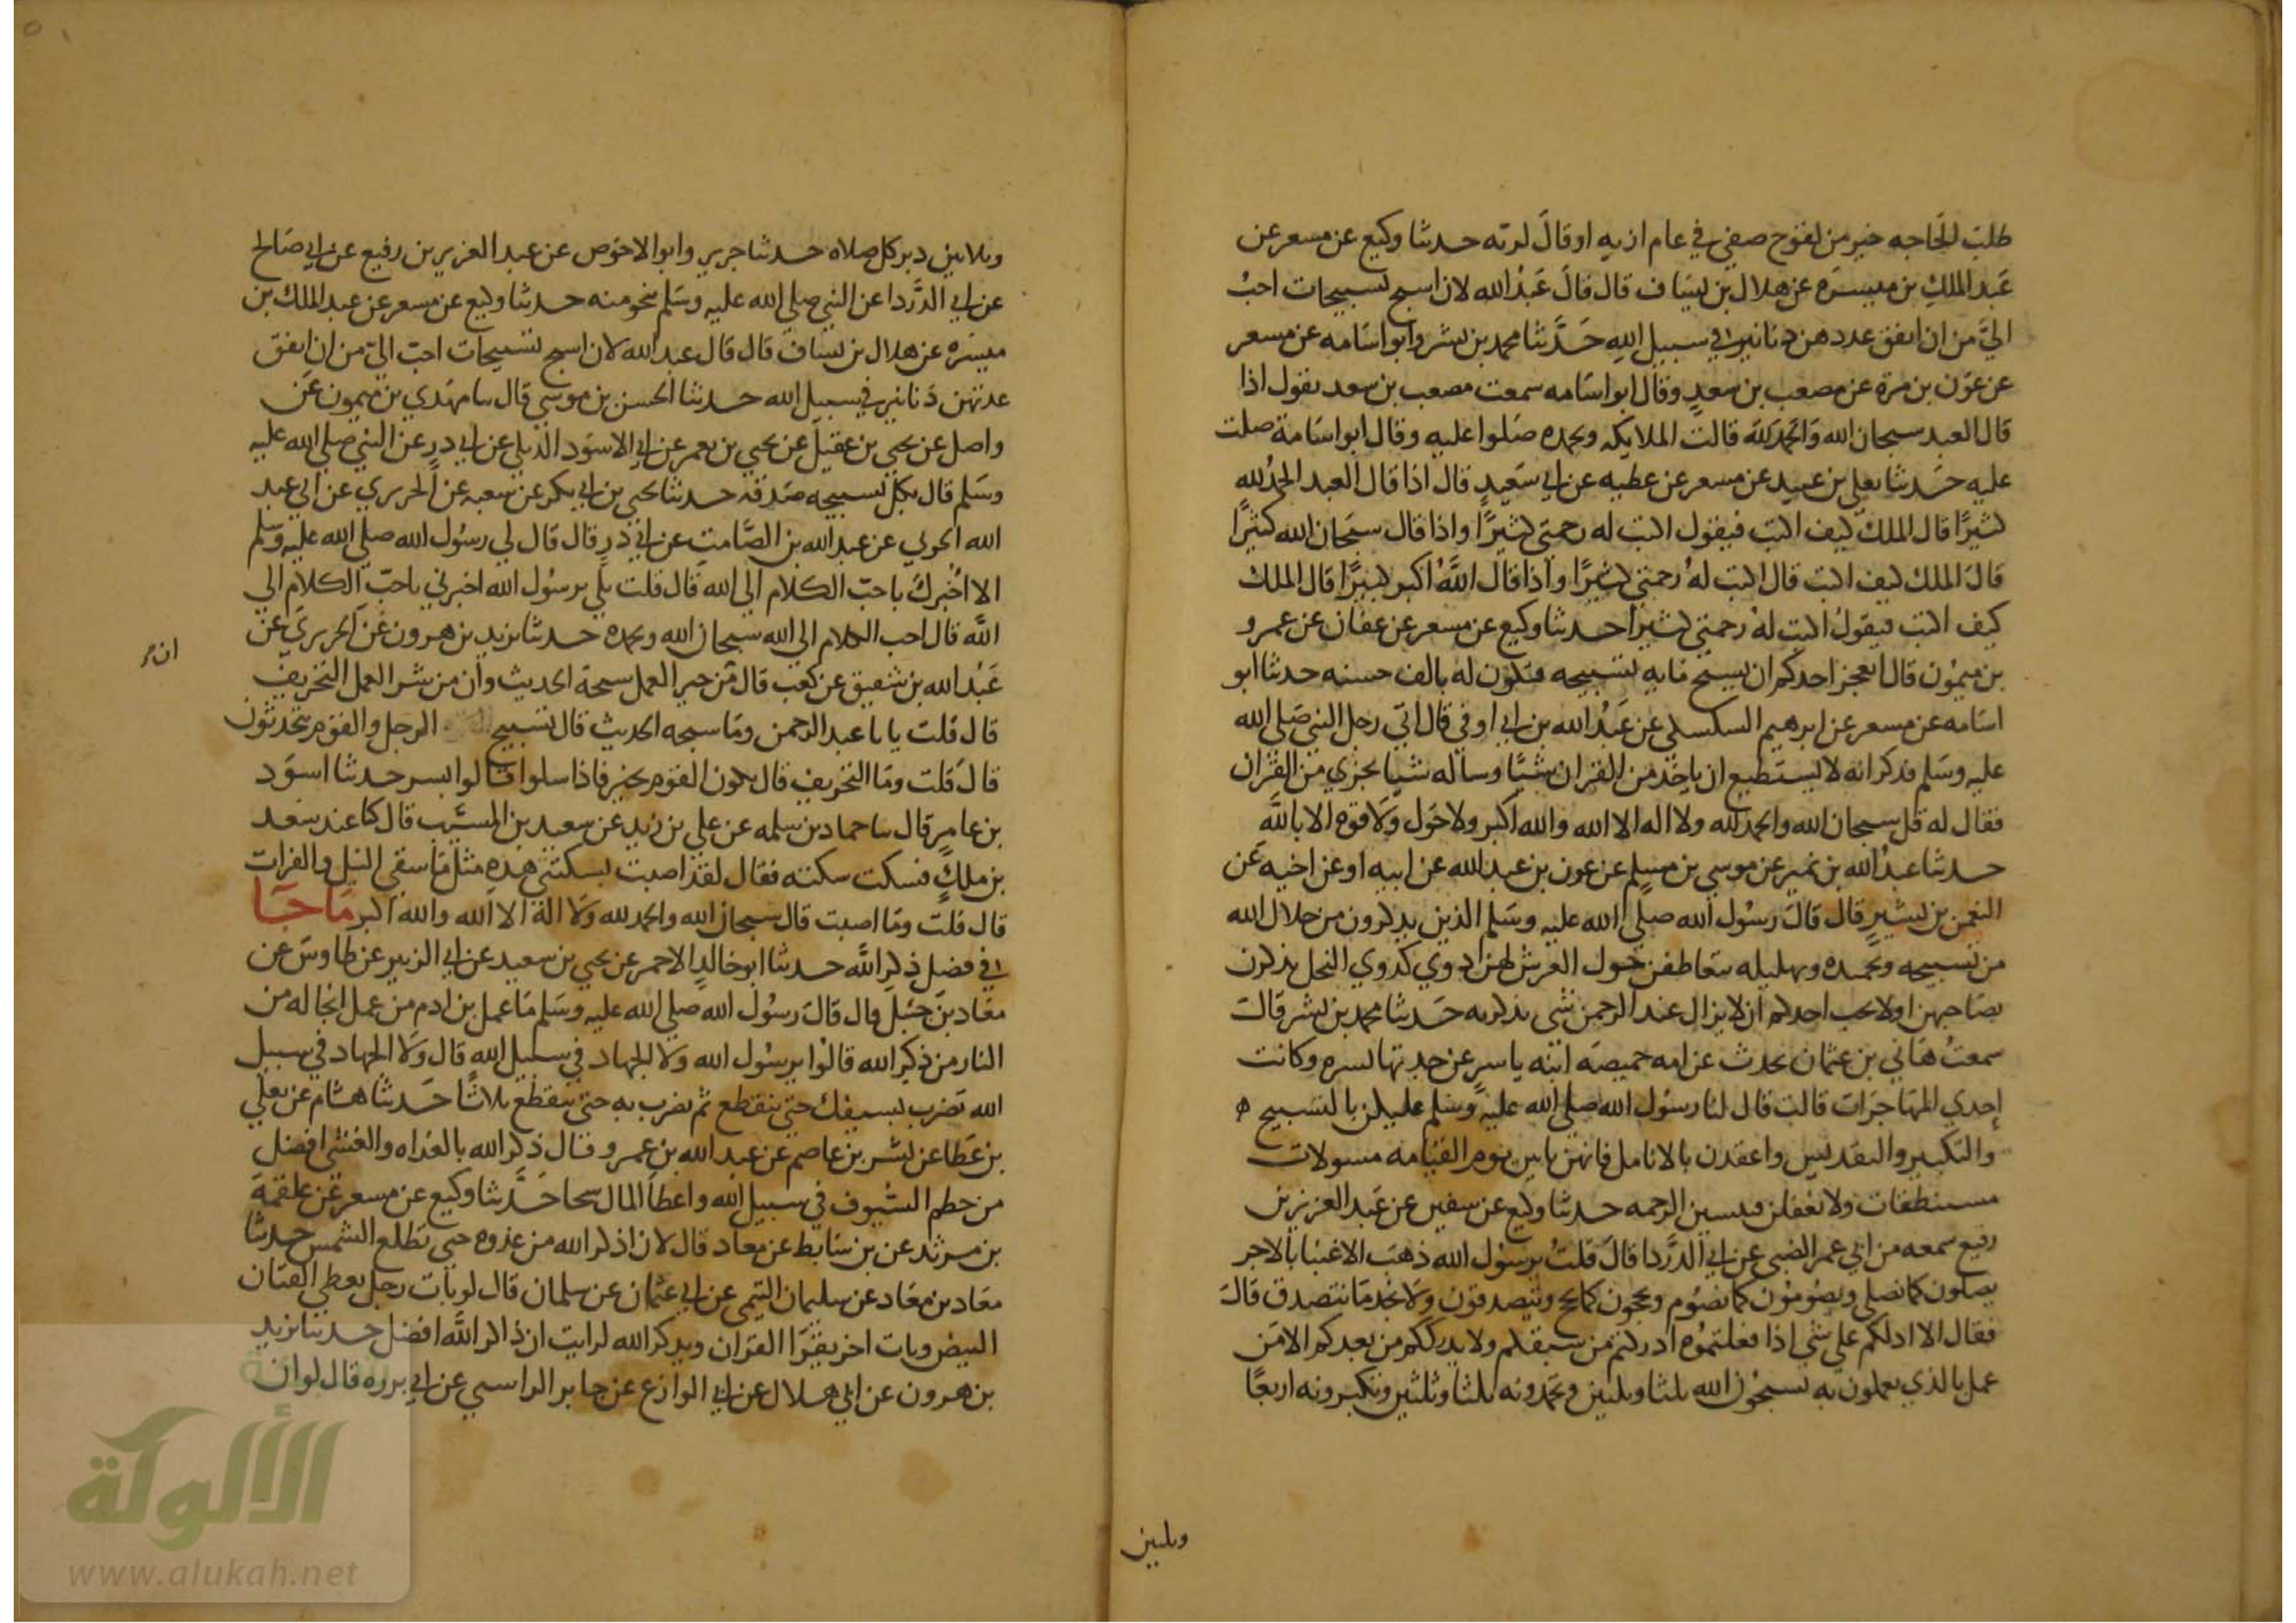 طلب الحاجه خير من لقوح صفي في عام ازبه او قال لزبه حدثنا وكيع عن مسعر عن
عبد الملك بن ميسره عن هلال بن يساف قال قال عبد الله لان اسبح تسبيحات احب
الي من ان انفق عددهن دنانير في سبيل الله حدثنا محمد بن بشر وابو اسامه عن مسعر
عن عون بن مرة عن مصعب بن سعد وقال ابو اسامه سمعت مصعب بن سعد يقول اذا
قال العبد سبحان الله والحمد لله قالت الملايكه وبحمده صلوا عليه وقال ابو اسامة صلت
عليه حدثنا يعلي بن عبيد عن مسعر عن عطيه عن ابي سعيد قال اذا قال العبد الحمد لله
كثيرا قال الملك كيف اكتب فيقول اكتب له رحمتي كثيرا واذا قال سبحان الله كثيرا
قال الملك كيف اكتب قال اكتب له رحمتي كثيرا واذا قال الله اكبر كبيرا قال الملك
كيف اكتب فيقول اكتب له رحمتي كثيرا حدثنا وكيع عن مسعر عن عفان عن عمرو
بن ميمون قال ايعجز احدكم ان يسبح مايه تسبيحه فتكون له بالف حسنه حدثنا ابو
اسامه عن مسعر عن ابرهيم السكسكي عن عبد الله بن ابي اوفي قال اتي رجل النبي صلي الله
عليه وسلم فذكر انه لا يستطيع ان ياخذ من القران شيا وساله شيا يجزي من القران
فقال له قل سبحان الله والحمد لله ولا اله الا الله والله اكبر ولا حول ولا قوه الا بالله
حدثنا عبد الله بن نمير عن موسي بن مسلم عن عون بن عبد الله عن ابيه او عن اخيه عن
النعمن بن بشير قال قال رسول الله صلي الله عليه وسلم الذين يذكرون من جلال الله
من تسبيحه وتحميده وتهليله يتعاطفن حول العرش لهن دوي كدوي النحل يذكرن
بصاحبهن اولا يحب احدكم ان لا يزال عند الرحمن شي يذكر به حدثنا محمد بن بشر قالت
سمعت هاني بن عثمان يحدث عن امه حميصه ابنه ياسر عن جدتها يسره وكانت
إحدي المهاجرات قالت قال لنا رسول الله صلي الله عليه وسلم عليكن بالتسبيح
والتكبير والتقديس واعقدن بالانامل فانهن ياتين يوم القيامه مسولات
مستنطقات ولا تغفلن فتنسين الرحمه حدثنا وكيع عن سفين عن عبد العزيز بن
رفيع سمعه من ابي عمر الضبي عن ابي الدردا قال قلت يرسول الله ذهب الاغنيا بالاجر
يصلون كما نصلي ويصومون كما نصوم ويحجون كما نحج ويتصدقون ولا نجد ما نتصدق قال
فقال الا ادلكم علي شي اذا فعلتموه ادركتم من سبقكم ولا يدرككم من بعدكم الا من
عمل بالذي يعملون به تسبحون الله ثلثا وثلثين وتحمدونه ثلثا وثلثين وتكبرونه اربعا
وثلثين
وثلاثين دبر كل صلاه حدثنا جرير وابو الاحوص عن عبد العزيز بن رفيع عن ابي صالح
عن ابي الدردا عن النبي صلي الله عليه وسلم نحو منه حدثنا وكيع عن مسعر عن عبد الملك بن
ميسره عن هلال بن يساف قال قال عبد الله لان اسبح تسبيحات احب الي من ان انفق
عدتهن دنانير في سبيل الله حدثنا الحسن بن موسي قال سا مهدي بن ميمون عن
واصل عن يحيي بن عقيل عن يحيي بن يعمر عن ابي الاسود الديلي عن ابي ذر عن النبي صلي الله عليه
وسلم قال بكل تسبيحه صدقه حدثنا يحيي بن ابي بكر عن شعبه عن الجريري عن ابي عبد
الله الجري عن عبد الله بن الصامت عن ابي ذر قال قال لي رسول الله صلي الله عليه وسلم
الا اخبرك باحب الكلام الي الله قال قلت بلي يرسول الله اخبرني باحب الكلام الي
الله قال احب الكلام الي الله سبحان الله وبحمده حدثنا يزيد بن هرون عن الجريري عن
عبد الله بن شقيق عن كعب قال من خير العمل سبحة الحديث وان من شر العمل التخريف
قال قلت يا ابا عبد الرحمن وما سبحه الحديث قال تسبيح الرجل والقوم يتحدثون
قال قلت وما التخريف قال يكون القوم بخير فاذا سلوا قالوا بسر حدثنا اسود
بن عامر قال سا حماد بن سلمه عن علي بن زيد عن سعيد بن المسيب قال كنا عند سعد
بن ملك فسكت سكته فقال لقد اصبت بسكتتي هذه مثل ما سقي النيل والفرات
قال قلت وما اصبت قال سبحان الله والحمد لله ولا اله الا الله والله اكبر ما جا
في فضل ذكر الله حدثنا ابو خالد الاحمر عن يحيي بن سعيد عن ابي الزبير عن طاوس عن
معاذ بن جبل قال قال رسول الله صلي الله عليه وسلم ما عمل بن ادم من عمل انجا له من
النار من ذكر الله قالوا يرسول الله ولا الجهاد في سبيل الله قال ولا الجهاد في سبيل
الله تضرب بسيفك حتي ينقطع ثم تضرب به حتي ينقطع ثلاثا حدثنا هشام عن يعلي
بن عطا عن بشر بن عاصم عن عبد الله بن عمرو قال ذكر الله بالغداه والعشي افضل
من حطم السيوف في سبيل الله واعطا المال سحا حدثنا وكيع عن مسعر عن علقمة
بن مرثد عن بن سابط عن معاذ قال لان اذكر الله من غدوه حتي تطلع الشمس حدثنا
معاذ بن معاذ عن سليمان التيمي عن ابي عثمان عن سلمان قال لو بات رجل يعطي القيان
البيض وبات اخر يقرا القران ويذكر الله لرايت ان ذاكر الله افضل حدثنا يزيد
بن هرون عن ابي هلال عن ابي الوازع عن جابر الراسبي عن ابي برزه قال لو ان
الألوكة
www.alukah.net